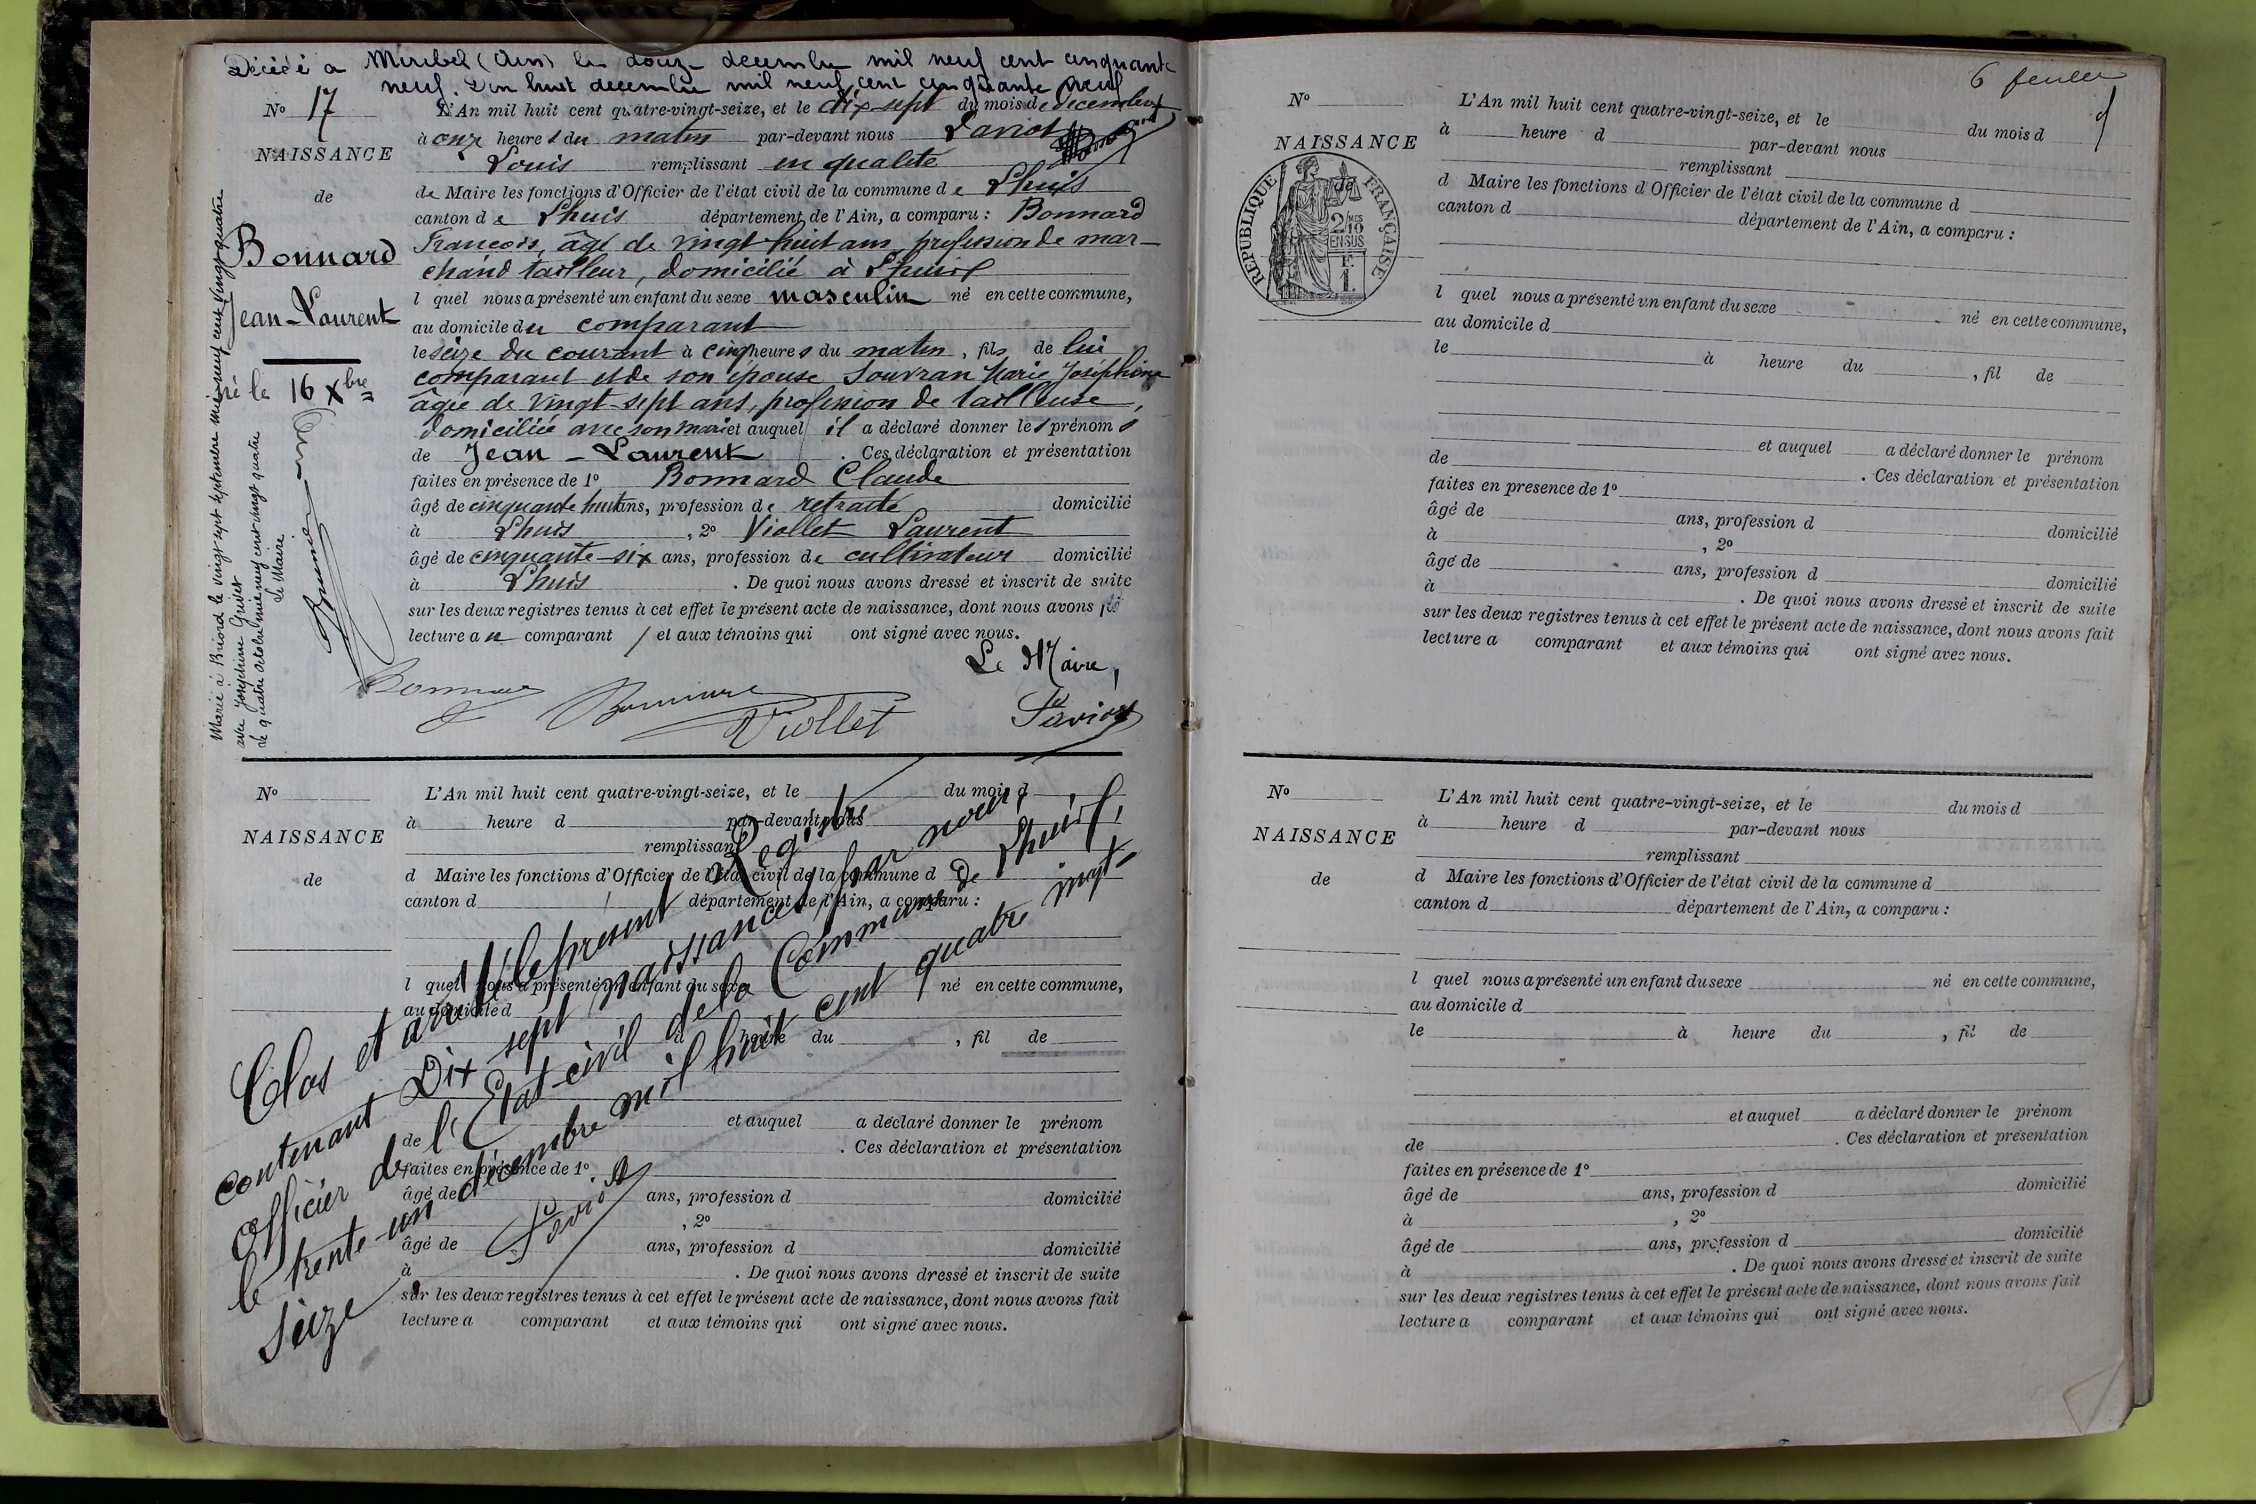 Décédé a Miribel (Ain) le douze decembre mil neuf cent cinquante
neuf. Dix huit decembre mil neuf cent cinquante neuf
N° 17
NAISSANCE
de
Bonnard
Jean-Laurent
né le 16 Xbre
Marié à Briord le vingt sept septembre mil neuf cent vingt quatre
avec Joséphine Grivet
Le quatre octobre mil neuf cent vingt quatre
Le Maire
L'An mil huit cent quatre-vingt-seize, et le dix sept du mois de décembre
à onze heures du matin par-devant nous Saviot
Louis remplissant en qualité
de Maire les fonctions d'Officier de l'état civil de la commune de Lhuis
canton de Lhuis département de l'Ain, a comparu : Bonnard
François, âgé de vingt huit ans, profession de mar-
chand tailleur, domicilié à Lhuis
lequel nous a présenté un enfant du sexe masculin né en cette commune,
au domicile du comparant
le seize du courant à cinq heures du matin, fils de lui
comparant et de son épouse Souvran Marie Joséphine
âgée de vingt-sept ans, profession de tailleuse,
domiciliée avec son mari et auquel il a déclaré donner les prénoms
de Jean-Laurent . Ces déclaration et présentation
faites en présence de 1° Bonnard Claude
âgé de cinquante huit ans, profession de retraité domicilié
à Lhuis , 2° Viollet Laurent
âgé de cinquante-six ans, profession de cultivateur domicilié
à Lhuis . De quoi nous avons dressé et inscrit de suite
sur les deux registres tenus à cet effet le présent acte de naissance, dont nous avons
lecture au comparant et aux témoins qui ont signé avec nous.
Le Maire,
Bonnard Bonnard Viollet Saviot
N°
NAISSANCE
de
L'An mil huit cent quatre-vingt-seize, et le du mois d
à heure d par-devant nous
remplissant
d Maire les fonctions d'Officier de l'état civil de la commune d
canton d département de l'Ain, a comparu :
l quel nous a présenté un enfant du sexe né en cette commune,
au domicile d
le à heure du , fil de
et auquel a déclaré donner le prénom
de . Ces déclaration et présentation
faites en présence de 1°
âgé de ans, profession d domicilié
à , 2°
âgé de ans, profession d domicilié
à . De quoi nous avons dressé et inscrit de suite
sur les deux registres tenus à cet effet le présent acte de naissance, dont nous avons fait
lecture a comparant et aux témoins qui ont signé avec nous.
Clos et arrêté le présent Registre
contenant Dix sept naissances, par nous,
Officier de l'Etat-civil de la Commune de Lhuis,
le trente-un décembre mil huit cent quatre vingt-
seize
Saviot
6 fevrier
N°
NAISSANCE
de
RÉPUBLIQUE FRANÇAISE
2/10
EN SUS
F.
1.
L'An mil huit cent quatre-vingt-seize, et le du mois d
à heure d par-devant nous
remplissant
d Maire les fonctions d'Officier de l'état civil de la commune d
canton d département de l'Ain, a comparu :
l quel nous a présenté un enfant du sexe né en cette commune,
au domicile d
le à heure du , fil de
et auquel a déclaré donner le prénom
de . Ces déclaration et présentation
faites en presence de 1°
âgé de ans, profession d domicilié
à , 2°
âgé de ans, profession d domicilié
à . De quoi nous avons dressé et inscrit de suite
sur les deux registres tenus à cet effet le présent acte de naissance, dont nous avons fait
lecture a comparant et aux témoins qui ont signé avec nous.
N°
NAISSANCE
de
L'An mil huit cent quatre-vingt-seize, et le du mois d
à heure d par-devant nous
remplissant
d Maire les fonctions d'Officier de l'état civil de la commune d
canton d département de l'Ain, a comparu :
l quel nous a présenté un enfant du sexe né en cette commune,
au domicile d
le à heure du , fil de
et auquel a déclaré donner le prénom
de . Ces déclaration et présentation
faites en présence de 1°
âgé de ans, profession d domicilié
à , 2°
âgé de ans, profession d domicilié
à . De quoi nous avons dressé et inscrit de suite
sur les deux registres tenus à cet effet le présent acte de naissance, dont nous avons fait
lecture a comparant et aux témoins qui ont signé avec nous.